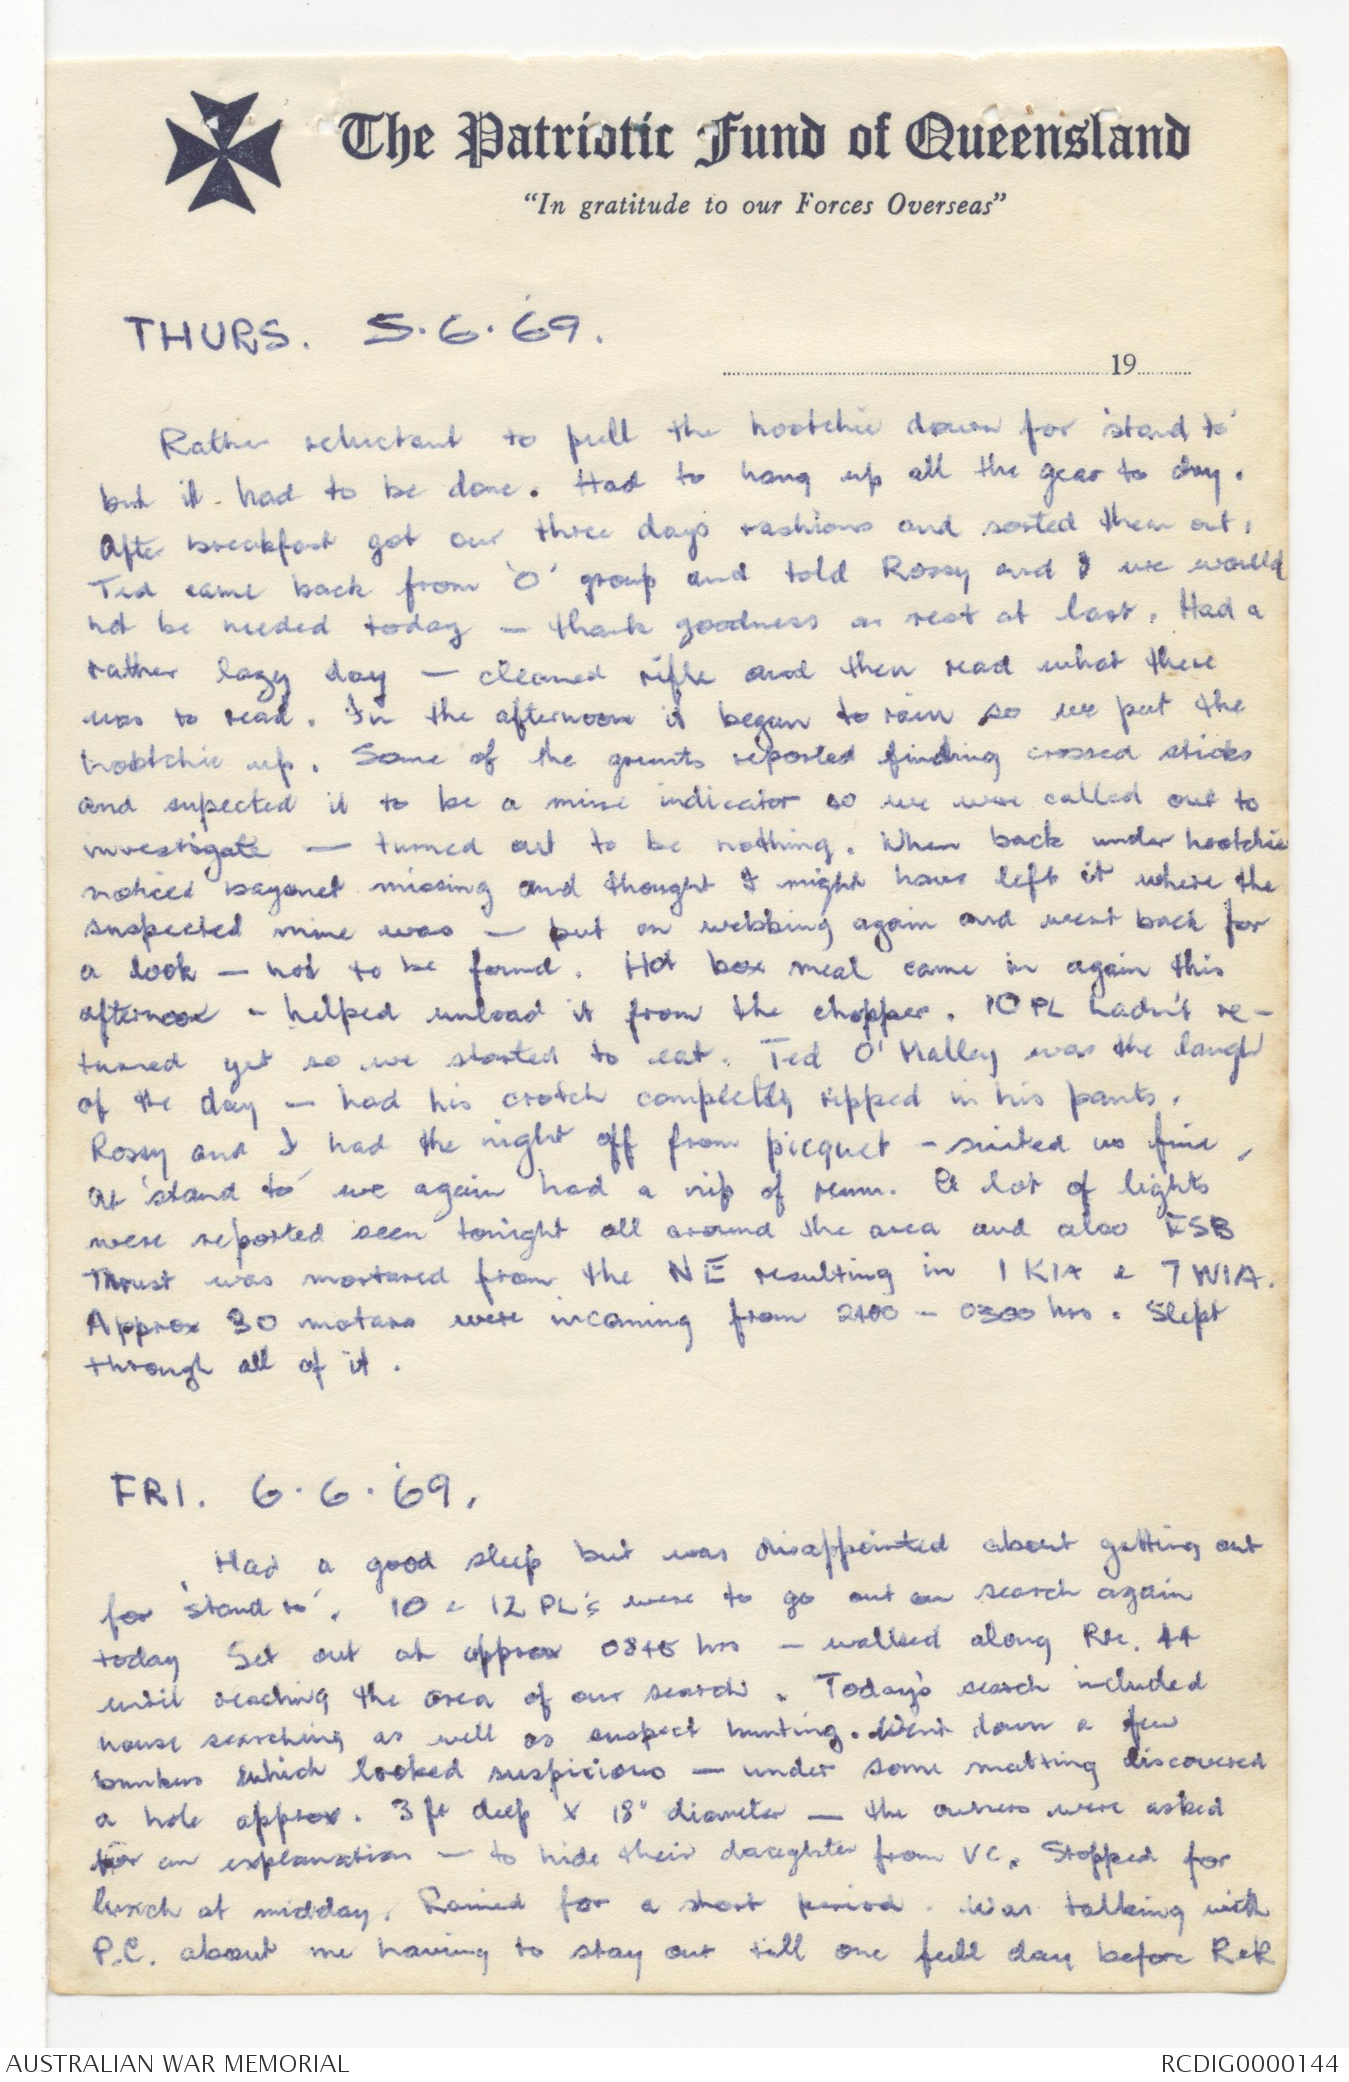 The Patriotic Fund of Queensland
"In gratitude to our Forces Overseas"
THURS. 5.6.'69.
19
Rather reluctant to pull the hootchie down for 'stand to'
but it had to be done. Had to hang up all the gear to dry.
After breakfast got our three days rashions and sorted them out.
Ted came back from 'O' group and told Rossy and I we would
not be needed today — thank goodness a rest at last. Had a
rather lazy day — cleaned rifle and then read what there
was to read. In the afternoon it began to rain so we put the
hootchie up. Some of the grunts reported finding crossed sticks
and supected it to be a mine indicator so we were called out to
investigate — turned out to be nothing. When back under hootchie
noticed bayonet missing and thought I might have left it where the
suspected mine was — put on webbing again and went back for
a look — not to be found. Hot box meal came in again this
afternoon - helped unload it from the chopper. 10 PL hadn't re-
turned yet so we started to eat. Ted O'Malley was the laugh
of the day — had his crotch completly ripped in his pants.
Rossy and I had the night off from picquet - suited us fine,
At 'stand to' we again had a nip of rum. A lot of lights
were reported seen tonight all around the area and also FSB
Thrust was mortared from the NE resulting in 1 KIA & 7 WIA.
Approx 30 motars were incoming from 2400 - 0300 hrs. Slept
through all of it.
FRI. 6.6.'69.
Had a good sleep but was disappointed about getting out
for 'stand to'. 10 & 12 PL's were to go out on search again
today Set out at approx 0845 hrs - walked along Rte. 44
until reaching the area of our search. Today's search included
house searching as well as suspect hunting. Went down a few
bunkers which looked suspicious — under some matting discovered
a hole approx. 3 ft deep x 18" diameter — the owners were asked
for an explanation — to hide their daughter from VC. Stopped for
lunch at midday. Rained for a short period. Was talking with
P.C. about me having to stay out till one full day before R&R
AUSTRALIAN WAR MEMORIAL
RCDIG0000144